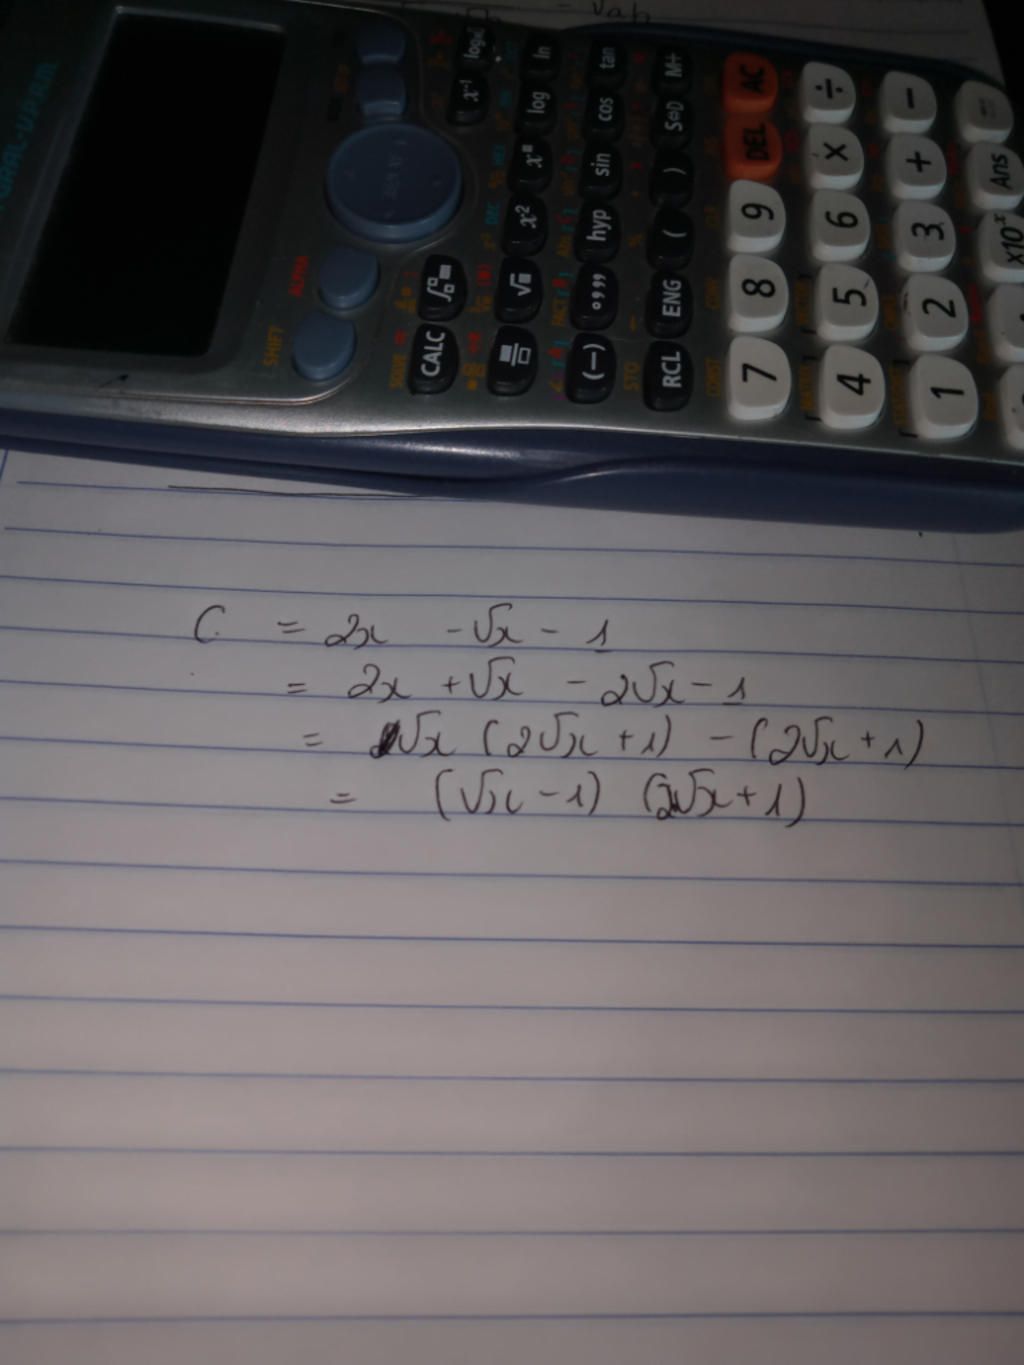 √ab
NATURAL-V.P.A.M.
SHIFT
ALPHA
SOLVE =
CALC
x⁻¹
√
x²
x^■
log
ln
(−)
° ' ''
hyp
sin
cos
tan
STO
RCL
ENG
(
)
S⇔D
M+
CONST
7 8 9 DEL AC
4 5 6 × ÷
1 2 3 + −
×10ˣ Ans =
C = 2x - √x - 1
= 2x + √x - 2√x - 1
= √x (2√x + 1) - (2√x + 1)
= (√x - 1) (2√x + 1)